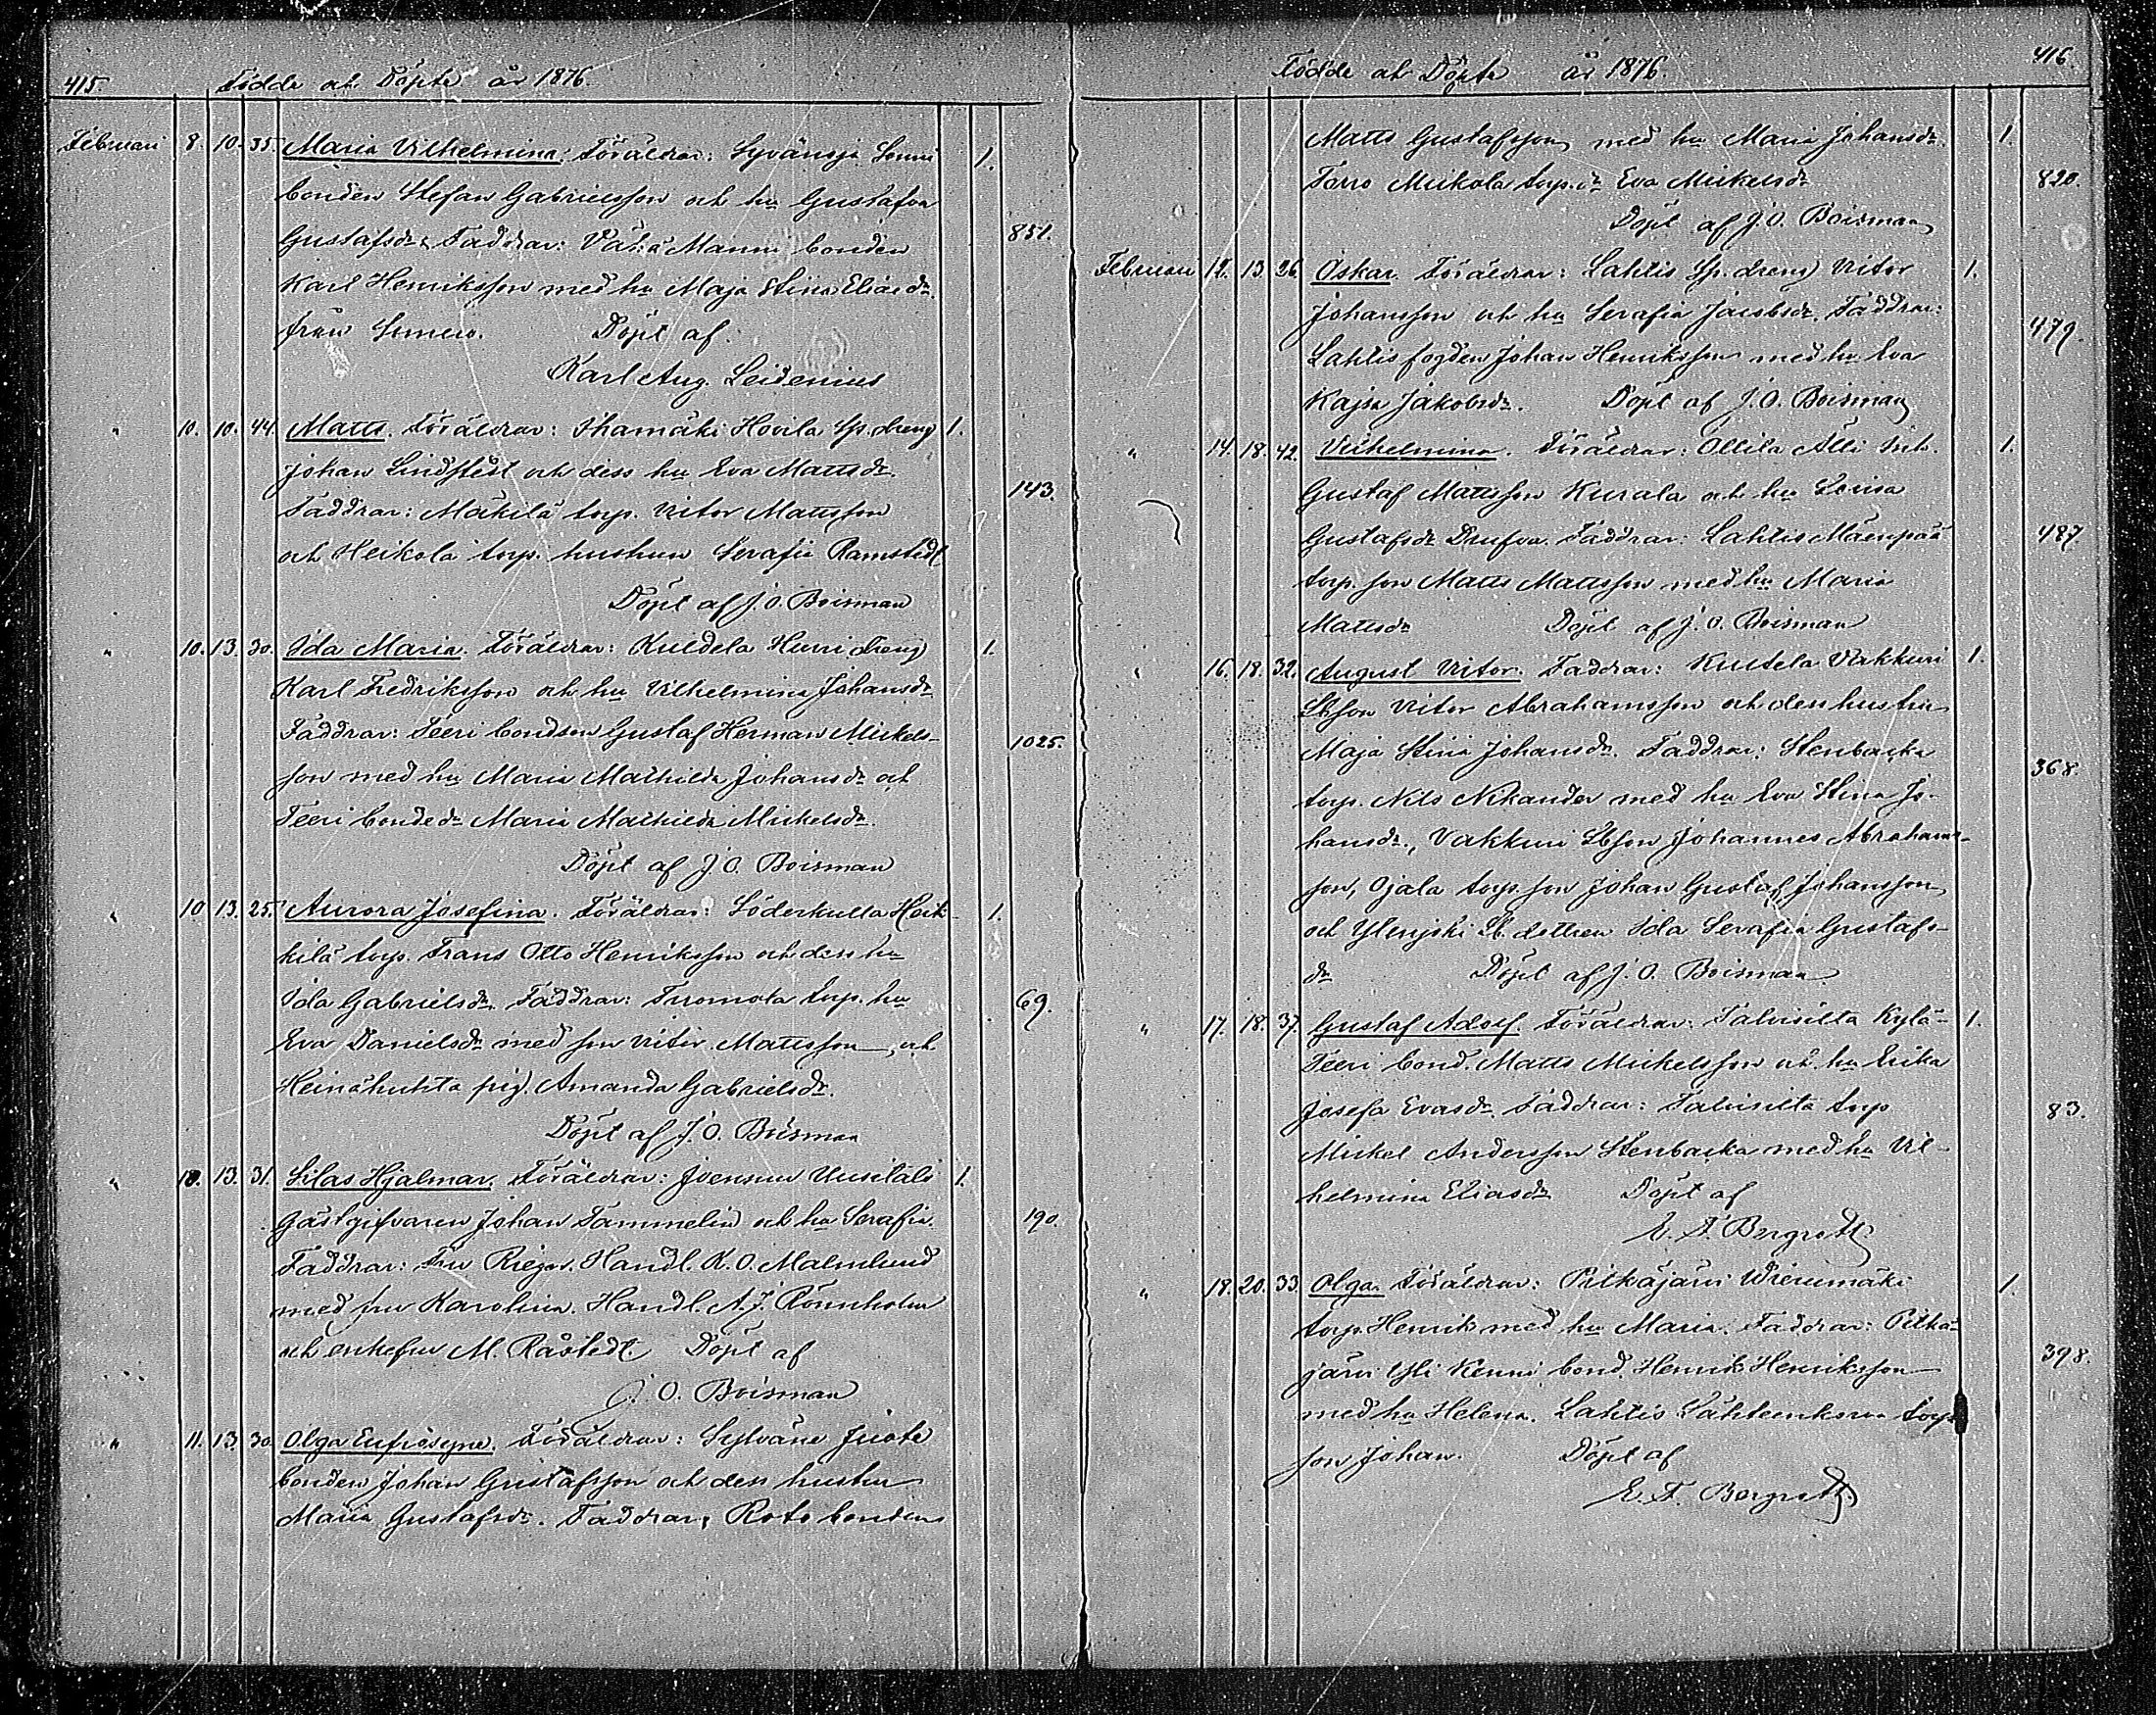 415. Födde och Döpte år 1876.
Februari 8. 10. 35. Maria Vilhelmina. Föräldrar: Syvänsjä Sonni 1.
bonden Stefan Gabrielsson och hu Gustafva
851.
Gustafsdr. Faddrar: Manni bonden
Karl Henriksson med hu Maja Stina Eliaedr.
från Somero. Döpt af.
Karl Aug. Leidenius
" 10. 10. 44. Matts. Föräldrar: Ihamäki Hovila Sp. dreng 1.
Johan Lindstedt och dess hu Eva Mattsdr.
143.
Faddrar: Mäkilä torp. Vitor Mattsson
och Heikola torp. hustrun Serafia Ramstedt
Döpt af J. O. Boisman
" 10. 13. 30. Ida Maria. Föräldrar: Kuldela Hurri dreng 1.
Karl Fredriksson och hu Vilhelmina Johansdr
Faddrar: Teeri bondson Gustaf Herman Mickels-
1025.
son med hu Maria Mathilda Johansdr och
Teeri bondedr Maria Mathilda Mickelsdr.
Döpt af J. O. Boisman
" 10 13. 25. Aurora Josefina. Föräldrar: Söderkulla Heik- 1.
kilä torp. Frans Otto Henriksson och dess hu
Ida Gabrielsdr. Faddrar: Tuomola torp. hu
69.
Eva Danielsdr med son Vitor Mattsson, och
Heinähuhta pig. Amanda Gabrielsdr.
Döpt af J. O. Boisman
" 10. 13. 31. Silas Hjalmar. Föräldrar: Joensuu Uusitalo 1.
Gästgifvaren Johan Tammelin och hu Serafia.
190.
Faddrar: Fru Rieger. Handl. K. O. Malmlund
med fru Karolina. Handl. A. J. Rönnholm
och enkefru M. Råstedt. Döpt af
J. O. Boisman
" 11. 13. 30. Olga Eufrosyne. Föräldrar: Sylväne Juote
bonden Johan Gustafsson och dess hustru
Maria Gustafsdr. Faddrar, Roto bonden
Födde och Döpte år 1876. 416.
Matts Gustafsson med hu Maria Johansdr. 1.
Torro Mickola torp.dr Eva Mickelsdr
820.
Döpt af J. O. Boisman
Februari 12. 13. 26. Oskar. Föräldrar: Lahtis Sp. dreng Vitor 1.
Johansson och hu Serafia Jacobsdr. Faddrar:
479.
Lahtis fogden Johan Henriksson med hu Eva
Kajsa Jakobsdr. Döpt af J. O. Boisman
" 14. 18. 42. Vilhelmina. Föräldrar: Ollila Alli Inh. 1.
Gustaf Mattsson Kurala och hu Lovisa
Gustafsdr Drufva. Faddrar: Lahtis Mäenpää
487.
torp. son Matts Mattsson med hu Maria
Mattsdr Döpt af J. O. Boisman
" 16. 18. 32. August Vitor. Faddrar: Kustela Vakkuri 1.
Sbson Vitor Abrahamsson och dess hustru
Maja Stina Johansdr. Faddrar: Stenbacka
368.
torp. Nils Nikander med hu Eva Stina Jo-
hansdr., Vakkuri Sbson Johannes Abrahams-
son, Ojala torp. son Johan Gustaf Johansson
och Sb. dottren Ida Serafia Gustafs-
dr Döpt af J. O. Boisman
" 17. 18. 37. Gustaf Adolf. Föräldrar: Talvisilta Kylä- 1.
Teeri bond. Matts Mickelsson och hu Erika
Josefa Evasdr. Faddrar: Talvisilta torp
83.
Mickel Andersson Stenbacka med hu Vil-
helmina Eliasdr Döpt af
E. F. Bergroth
" 18. 20. 33. Olga. Föräldrar: Pitkäjärvi Wierumäki 1.
torp. Henrik med hu Maria. Faddrar: Pitkä-
398.
järvi Yli Kenni bond. Henrik Henriksson
med hu Helena. Lahtis Lähteenkorva torp.
son Johan. Döpt af
E. F. Bergroth